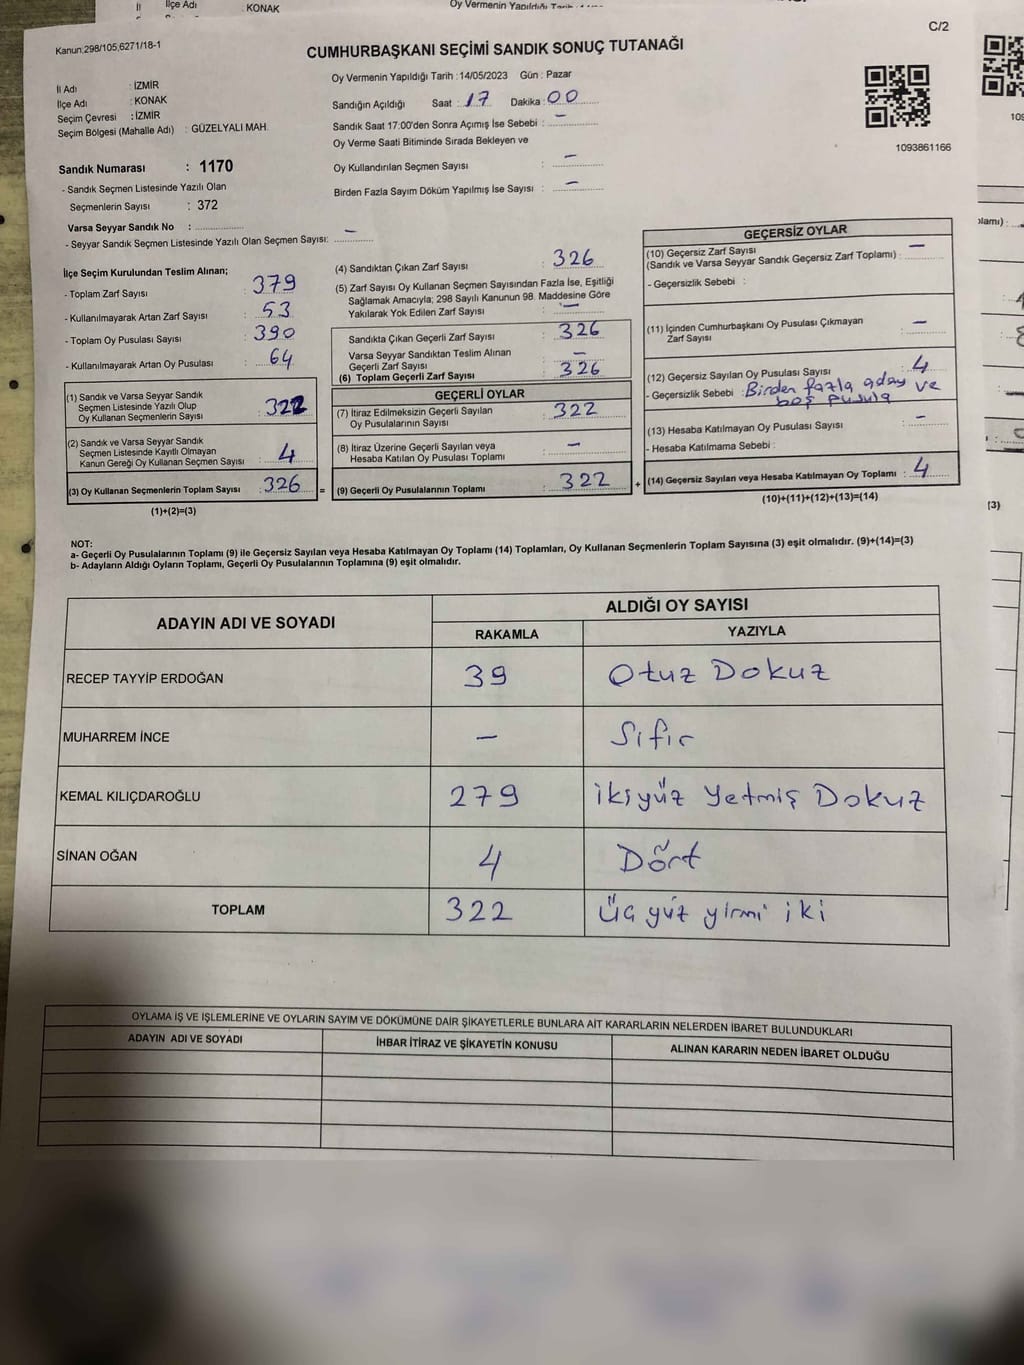 İlçe Adı : KONAK
Oy Vermenin Yapıldığı Tarih
C/2
Kanun:298/105,6271/18-1
CUMHURBAŞKANI SEÇİMİ SANDIK SONUÇ TUTANAĞI
Oy Vermenin Yapıldığı Tarih :14/05/2023 Gün : Pazar
İl Adı : İZMİR
İlçe Adı : KONAK
Seçim Çevresi : İZMİR
Seçim Bölgesi (Mahalle Adı) : GÜZELYALI MAH.
Sandığın Açıldığı Saat : 17 Dakika : 00
Sandık Saat 17:00'den Sonra Açımış İse Sebebi : —
Oy Verme Saati Bitiminde Sırada Bekleyen ve
Oy Kullandırılan Seçmen Sayısı : —
Birden Fazla Sayım Döküm Yapılmış İse Sayısı : —
1093861166
Sandık Numarası : 1170
- Sandık Seçmen Listesinde Yazılı Olan
Seçmenlerin Sayısı : 372
Varsa Seyyar Sandık No :
- Seyyar Sandık Seçmen Listesinde Yazılı Olan Seçmen Sayısı: —
İlçe Seçim Kurulundan Teslim Alınan;
- Toplam Zarf Sayısı : 379
- Kullanılmayarak Artan Zarf Sayısı : 53
- Toplam Oy Pusulası Sayısı : 390
- Kullanılmayarak Artan Oy Pusulası : 64
(1) Sandık ve Varsa Seyyar Sandık
Seçmen Listesinde Yazılı Olup
Oy Kullanan Seçmenlerin Sayısı : 322
(2) Sandık ve Varsa Seyyar Sandık
Seçmen Listesinde Kayıtlı Olmayan
Kanun Gereği Oy Kullanan Seçmen Sayısı : 4
(3) Oy Kullanan Seçmenlerin Toplam Sayısı : 326 =
(1)+(2)=(3)
(4) Sandıktan Çıkan Zarf Sayısı : 326
(5) Zarf Sayısı Oy Kullanan Seçmen Sayısından Fazla İse, Eşitliği
Sağlamak Amacıyla; 298 Sayılı Kanunun 98. Maddesine Göre
Yakılarak Yok Edilen Zarf Sayısı : —
Sandıkta Çıkan Geçerli Zarf Sayısı : 326
Varsa Seyyar Sandıktan Teslim Alınan
Geçerli Zarf Sayısı : —
(6) Toplam Geçerli Zarf Sayısı : 326
GEÇERLİ OYLAR
(7) İtiraz Edilmeksizin Geçerli Sayılan
Oy Pusulalarının Sayısı : 322
(8) İtiraz Üzerine Geçerli Sayılan veya
Hesaba Katılan Oy Pusulası Toplamı : —
(9) Geçerli Oy Pusulalarının Toplamı : 322 +
GEÇERSİZ OYLAR
(10) Geçersiz Zarf Sayısı
(Sandık ve Varsa Seyyar Sandık Geçersiz Zarf Toplamı) : —
- Geçersizlik Sebebi :
(11) İçinden Cumhurbaşkanı Oy Pusulası Çıkmayan
Zarf Sayısı : —
(12) Geçersiz Sayılan Oy Pusulası Sayısı : 4
- Geçersizlik Sebebi : Birden fazla aday ve
boş pusula
(13) Hesaba Katılmayan Oy Pusulası Sayısı : —
- Hesaba Katılmama Sebebi :
(14) Geçersiz Sayılan veya Hesaba Katılmayan Oy Toplamı : 4
(10)+(11)+(12)+(13)=(14)
(3)
NOT:
a- Geçerli Oy Pusulalarının Toplamı (9) ile Geçersiz Sayılan veya Hesaba Katılmayan Oy Toplamı (14) Toplamları, Oy Kullanan Seçmenlerin Toplam Sayısına (3) eşit olmalıdır. (9)+(14)=(3)
b- Adayların Aldığı Oyların Toplamı, Geçerli Oy Pusulalarının Toplamına (9) eşit olmalıdır.
ADAYIN ADI VE SOYADI ALDIĞI OY SAYISI
RAKAMLA YAZIYLA
RECEP TAYYİP ERDOĞAN 39 Otuz Dokuz
MUHARREM İNCE — Sıfır
KEMAL KILIÇDAROĞLU 279 ikiyüz Yetmiş Dokuz
SİNAN OĞAN 4 Dört
TOPLAM 322 Üç yüz yirmi iki
OYLAMA İŞ VE İŞLEMLERİNE VE OYLARIN SAYIM VE DÖKÜMÜNE DAİR ŞİKAYETLERLE BUNLARA AİT KARARLARIN NELERDEN İBARET BULUNDUKLARI
ADAYIN ADI VE SOYADI İHBAR İTİRAZ VE ŞİKAYETİN KONUSU ALINAN KARARIN NEDEN İBARET OLDUĞU